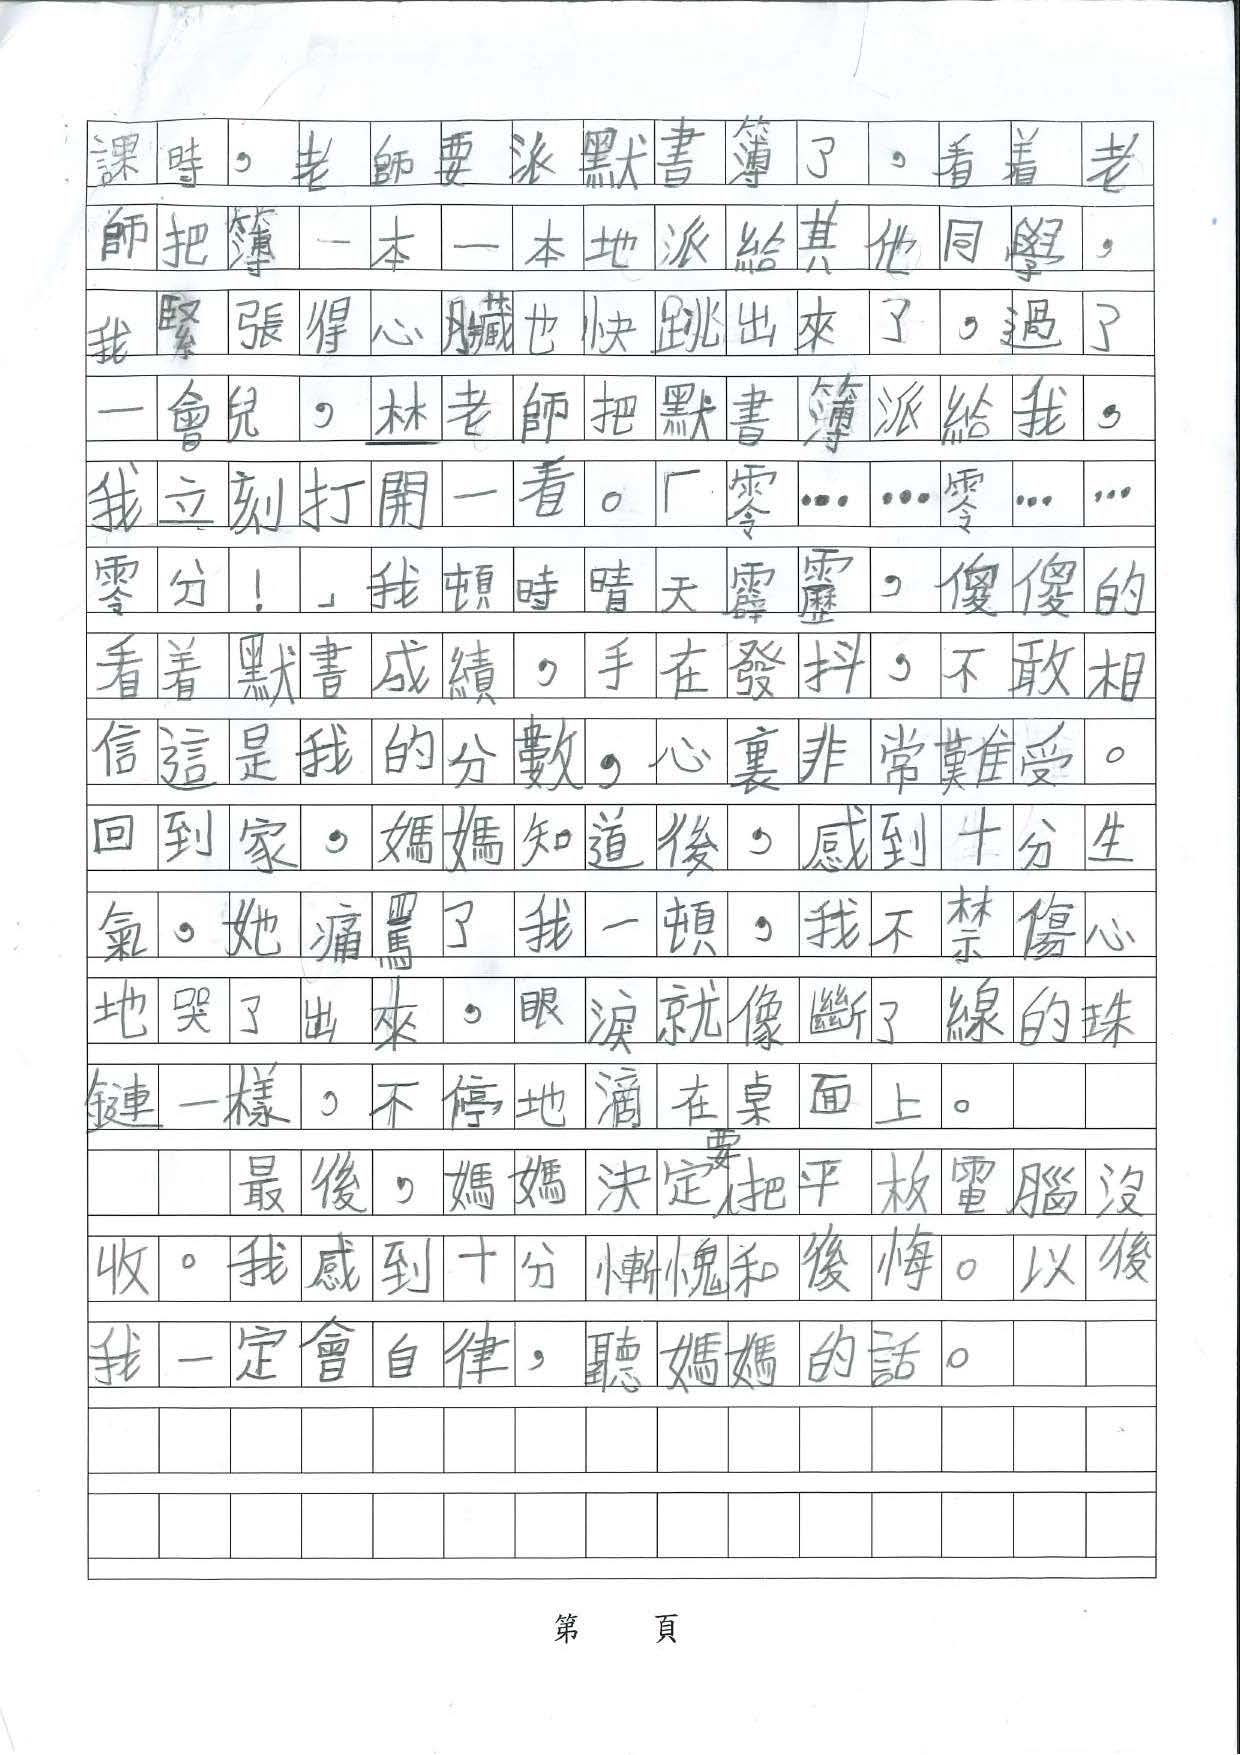 課時，老師要派默書簿了，看着老
師把簿一本一本地派給其他同學，
我緊張得心臟也快跳出來了。過了
一會兒，林老師把默書簿派給我，
我立刻打開一看。「零……零……
零分！」我頓時晴天霹靂，傻傻的
看着默書成績，手在發抖，不敢相
信這是我的分數，心裏非常難受。
回到家，媽媽知道後，感到十分生
氣，她痛罵了我一頓，我不禁傷心
地哭了出來，眼淚就像斷了線的珠
鏈一樣，不停地滴在桌面上。
最後，媽媽決定要把平板電腦沒
收。我感到十分慚愧和後悔。以後
我一定會自律，聽媽媽的話。
第　頁